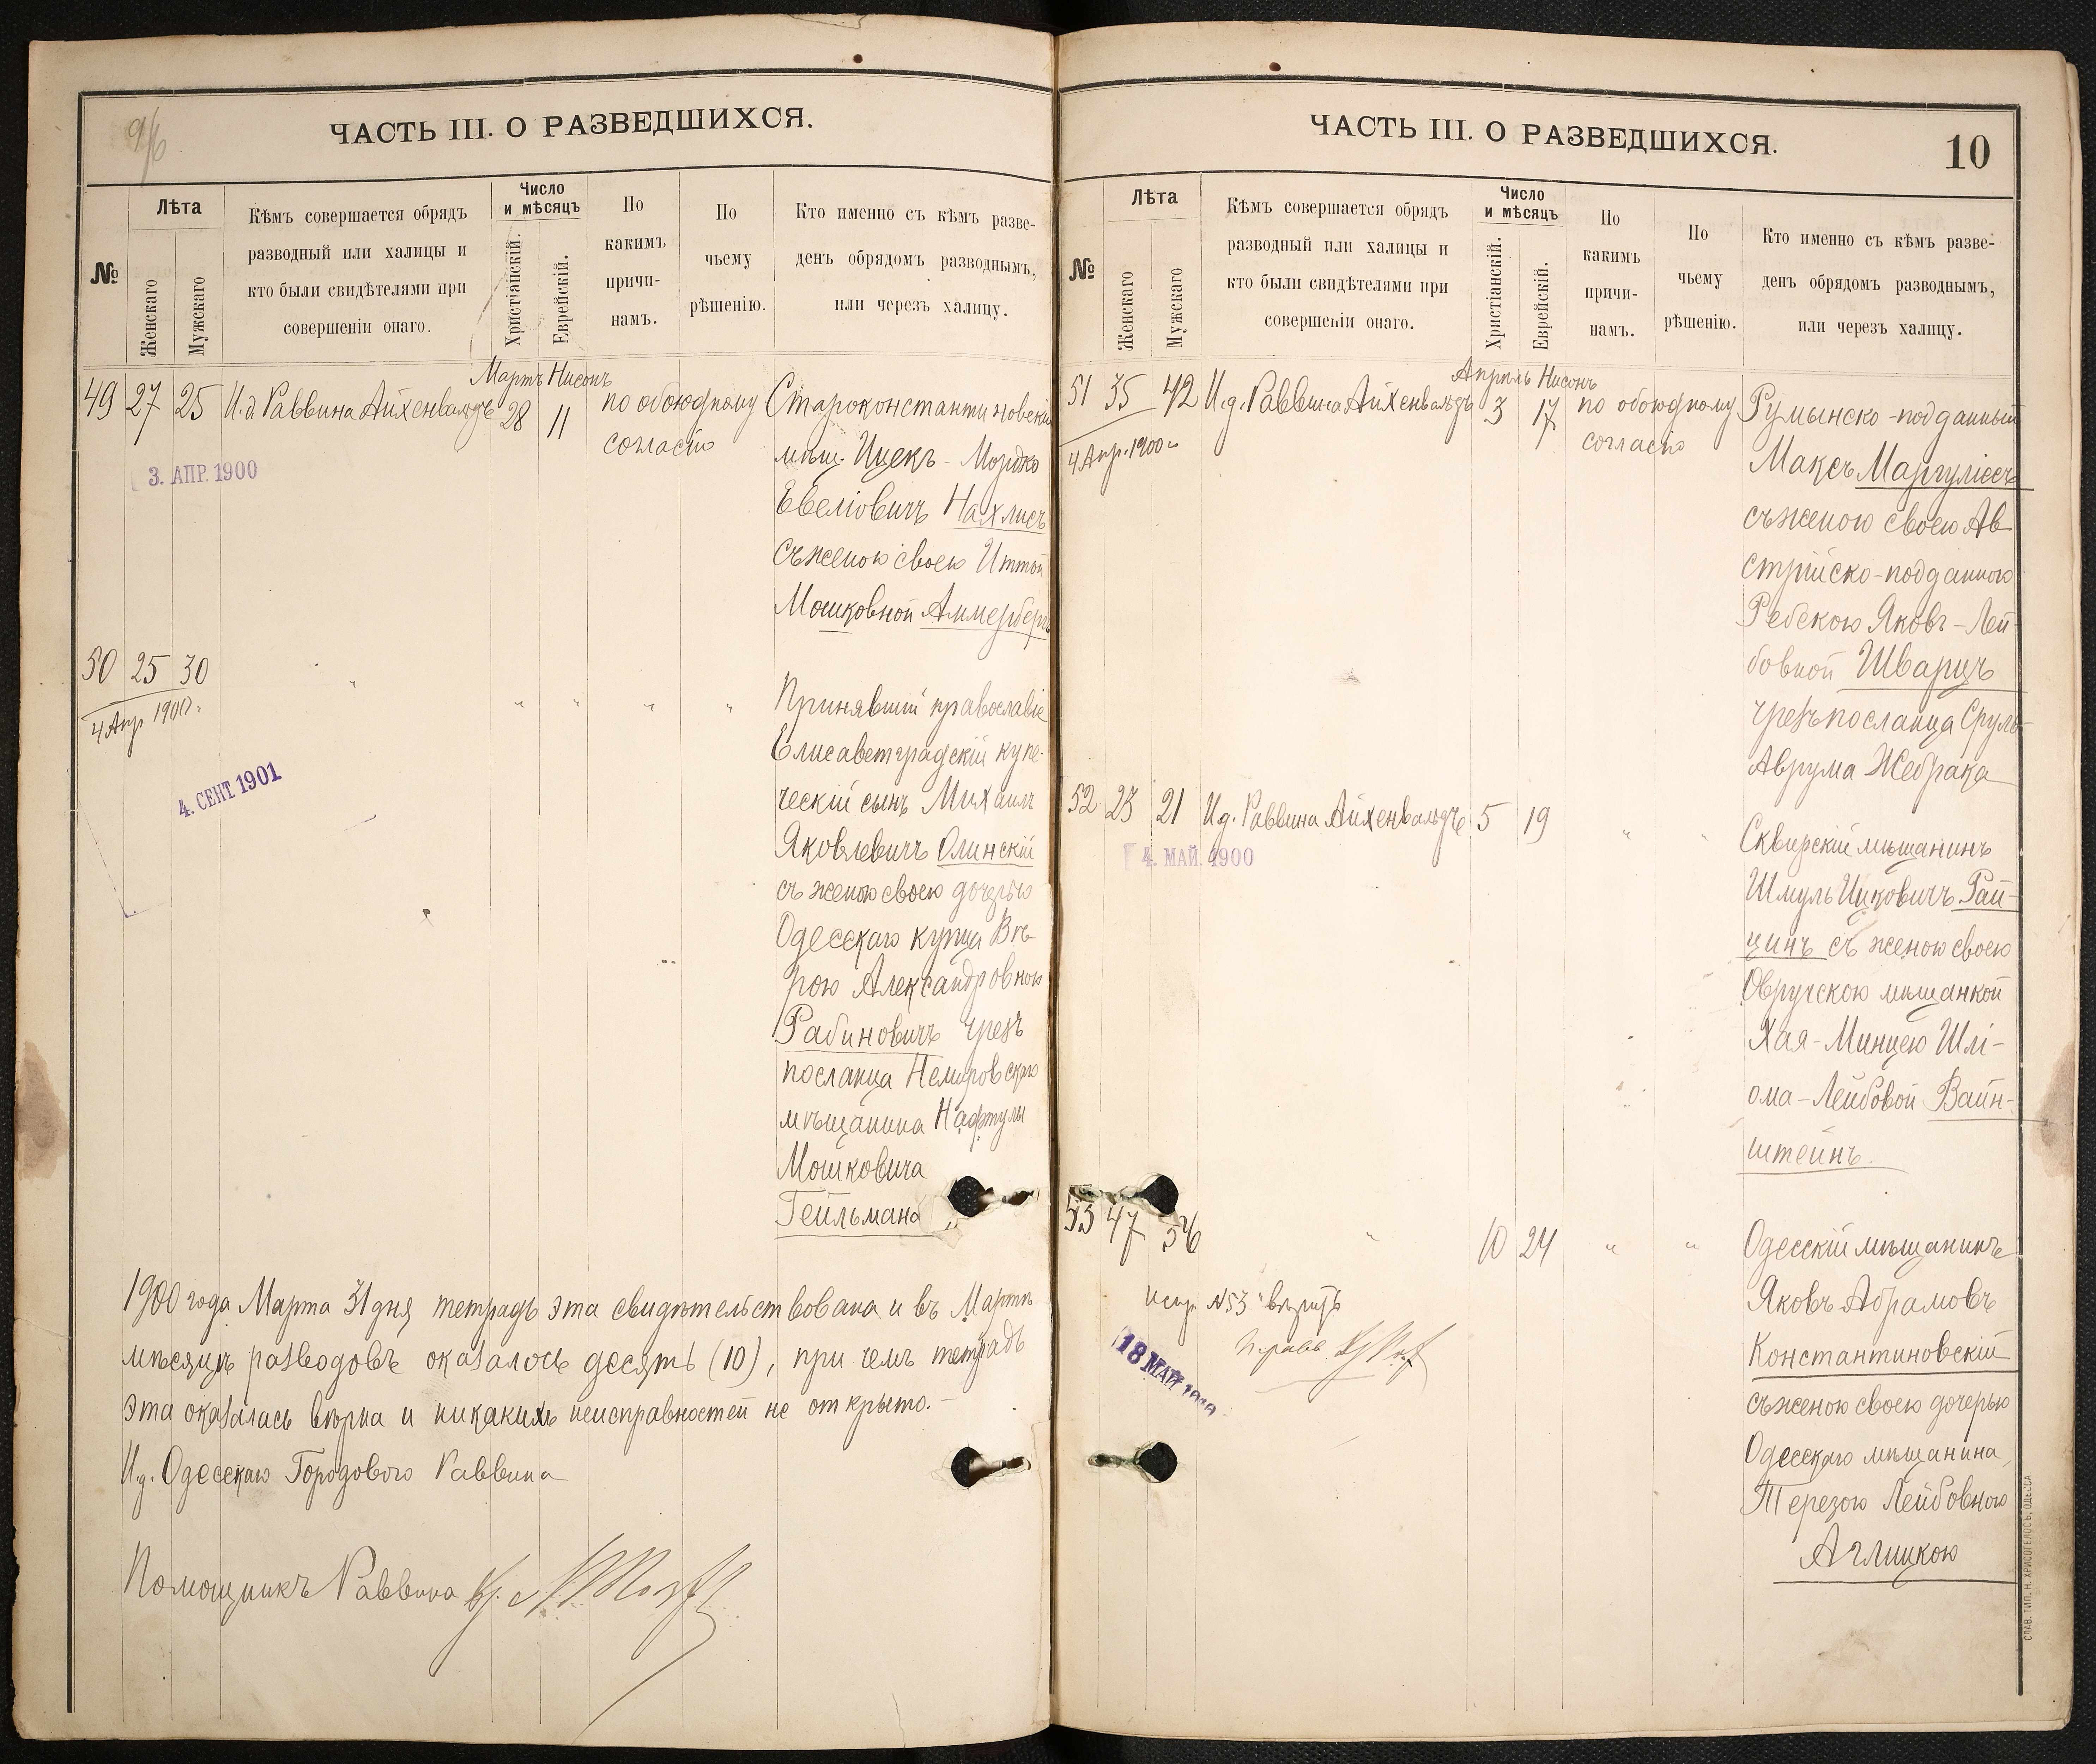 ЧАСТЬ III. О РАЗВЕДШИХСЯ.
№
Лѣта
Женскаго
Мужскаго
Кѣмъ совершается обрядъ
разводный или халицы и
кто были свидѣтелями при
совершеніи онаго.
Число
и мѣсяцъ
Христіанскій.
Еврейскій.
По
какимъ
причи-
намъ.
По
чьему
рѣшенію.
Кто именно съ кѣмъ разве-
денъ обрядомъ разводнымъ,
или черезъ халицу.
Мартъ Нисонъ
49 27 25 И.д. Раввина Айхенвальдъ 28 11 по обоюдному
согласію
3. АПР. 1900
Староконстантиновскій
мѣщ. Ицекъ-Мордко
Евеліовичъ Нахлисъ
съ женою своею Иттой
Мошковной Аммерберъ
50 25 30 " " " " "
4 Апр 1900г.
4. СЕНТ 1901
Принявшій православіе
Елисаветградскій купе-
ческій сынъ Михаилъ
Яковлевичъ Олинскій
съ женою своею дочерью
Одесскаго купца Вѣ-
рою Александровною
Рабиновичъ чрезъ
посланца Немировскаго
мѣщанина Нафтулы
Мошковича
Гейльмана
1900 года Марта 31 дня тетрадь эта свидѣтельствована и въ Мартѣ
мѣсяцѣ разводовъ оказалось десять (10), при чемъ тетрадь
эта оказалась вѣрна и никакихъ неисправностей не открыто.-
И.д. Одесскаго Городового Раввина
Помощникъ Раввина
ЧАСТЬ III. О РАЗВЕДШИХСЯ.
10
№
Лѣта
Женскаго
Мужскаго
Кѣмъ совершается обрядъ
разводный или халицы и
кто были свидѣтелями при
совершеніи онаго.
Число
и мѣсяцъ
Христіанскій.
Еврейскій.
По
какимъ
причи-
намъ.
По
чьему
рѣшенію.
Кто именно съ кѣмъ разве-
денъ обрядомъ разводнымъ,
или черезъ халицу.
Апрѣль Нисонъ
51 35 42 И.д. Раввина Айхенвальдъ 3 17 по обоюдному
согласію
4 Апр. 1900г.
Румынско-подданный
Максъ Маргуліесъ
съ женою своею Ав-
стрійско-подданною
Ребекою Яковъ-Лей-
бовной Шварцъ
чрезъ посланца Сруль-
Аврума Жебрака
52 23 21 И.д. Раввина Айхенвальдъ 5 19 " "
4. МАЙ. 1900
Сквирскій мѣщанинъ
Шмуль Ицковичъ Рай-
цинъ съ женою своею
Овручскою мѣщанкой
Хая-Минцею Шлі-
ома-Лейбовой Вайн-
штейнъ.
53 47 56 " 10 24 " "
Испр. №53 "вѣрить
18 МАЙ 1900
Одесскій мѣщанинъ
Яковъ Абрамовъ
Константиновскій
съ женою своею дочерью
Одесскаго мѣщанина
Терезою Лейбовною
Аглицкою
СЛАВ. ТИП. Н. ХРИСОГЕЛОСЪ, ОДЕССА